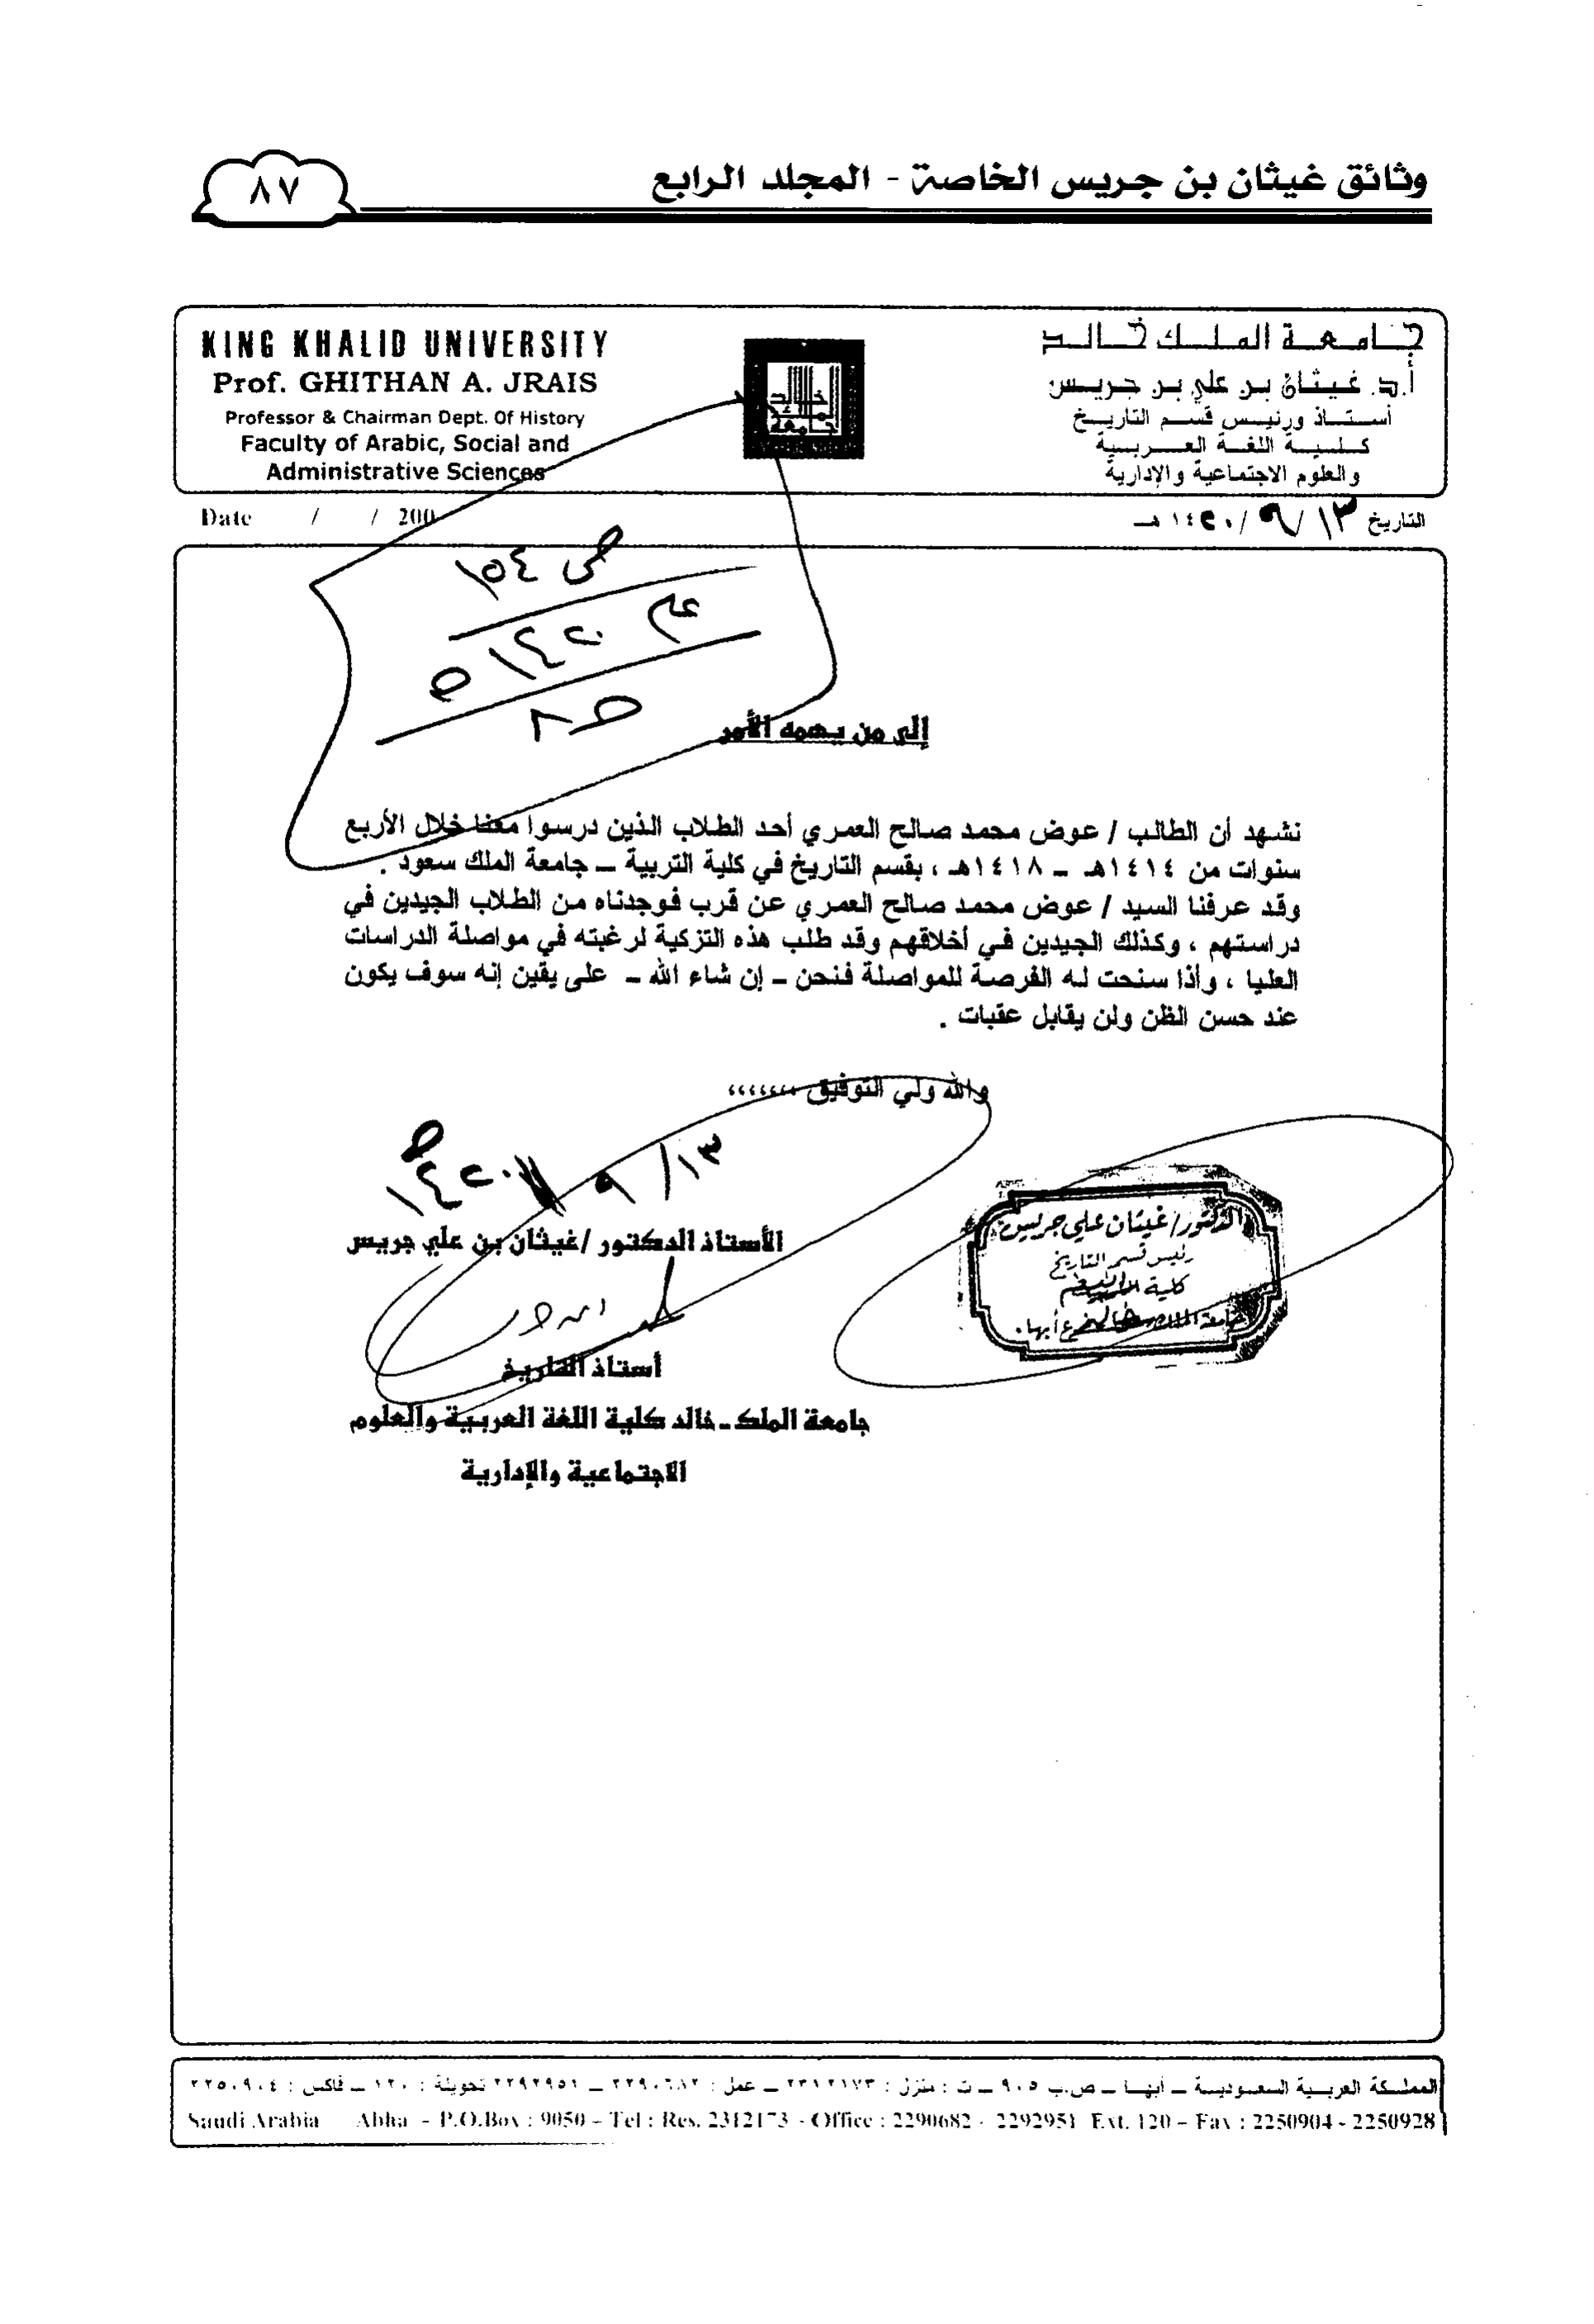 وثائق غيثان بن جريس الخاصة - المجلد الرابع
٨٧
KING KHALID UNIVERSITY
Prof. GHITHAN A. JRAIS
Professor & Chairman Dept. Of History
Faculty of Arabic, Social and
Administrative Sciences
جامعة الملك خالد
أ.د. غيثان بن علي بن جريس
أستاذ ورئيس قسم التاريخ
كلية اللغة العربية
والعلوم الاجتماعية والإدارية
Date / / 200
التاريخ ١٣/٩/١٤٢٠ هـ
ص ١٥٤
١٤٢٠ هـ
إلى من يهمه الأمر
نشهد أن الطالب / عوض محمد صالح العمري أحد الطلاب الذين درسوا معنا خلال الأربع
سنوات من ١٤١٤هـ – ١٤١٨هـ ، بقسم التاريخ في كلية التربية – جامعة الملك سعود .
وقد عرفنا السيد / عوض محمد صالح العمري عن قرب فوجدناه من الطلاب الجيدين في
دراستهم ، وكذلك الجيدين في أخلاقهم وقد طلب هذه التزكية لرغبته في مواصلة الدراسات
العليا ، وأذا سنحت له الفرصة للمواصلة فنحن – إن شاء الله – على يقين إنه سوف يكون
عند حسن الظن ولن يقابل عقبات .
والله ولي التوفيق ،،،،،،،
١٣/ ٩ / ١٤٢٠هـ
الأستاذ الدكتور /غيثان بن علي جريس
أستاذ التاريخ
جامعة الملك ـ خالد كلية اللغة العربية والعلوم
الاجتماعية والإدارية
الدكتور/ غيثان علي جريس
رئيس قسم التاريخ
كلية
أبها.
المملكة العربية السعودية – أبها – ص.ب ٩٠٥ – ت : منزل : ٢٣١٢١٧٣ – عمل : ٢٢٩٠٦٨٢ – ٢٢٩٢٩٥١ تحويلة : ١٢٠ – فاكس : ٢٢٥٠٩٠٤
Saudi Arabia Abha - P.O.Box : 9050 – Tel : Res. 2312173 - Office : 2290682 - 2292951 Ext. 120 – Fax : 2250904 - 2250928